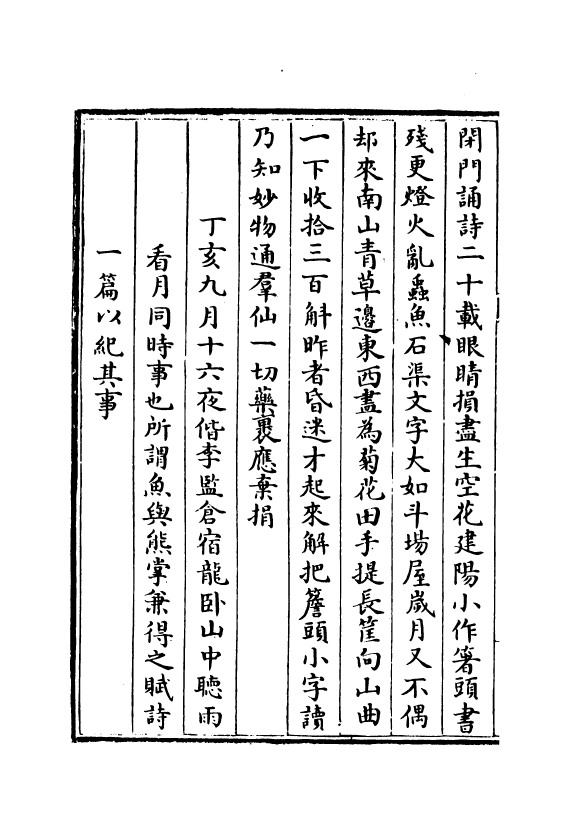 閉門誦詩二十載眼睛損盡生空花建陽小作箸頭書
殘更燈火亂蟲魚石渠文字大如斗場屋歲月又不偶
却來南山青草邊東西盡為菊花田手提長筐向山曲
一下收拾三百斛昨者昏迷才起來解把簷頭小字讀
乃知妙物通羣仙一切藥裹應棄捐
丁亥九月十六夜偕李監倉宿龍卧山中聽雨
看月同時事也所謂魚與熊掌兼得之賦詩
一篇以紀其事